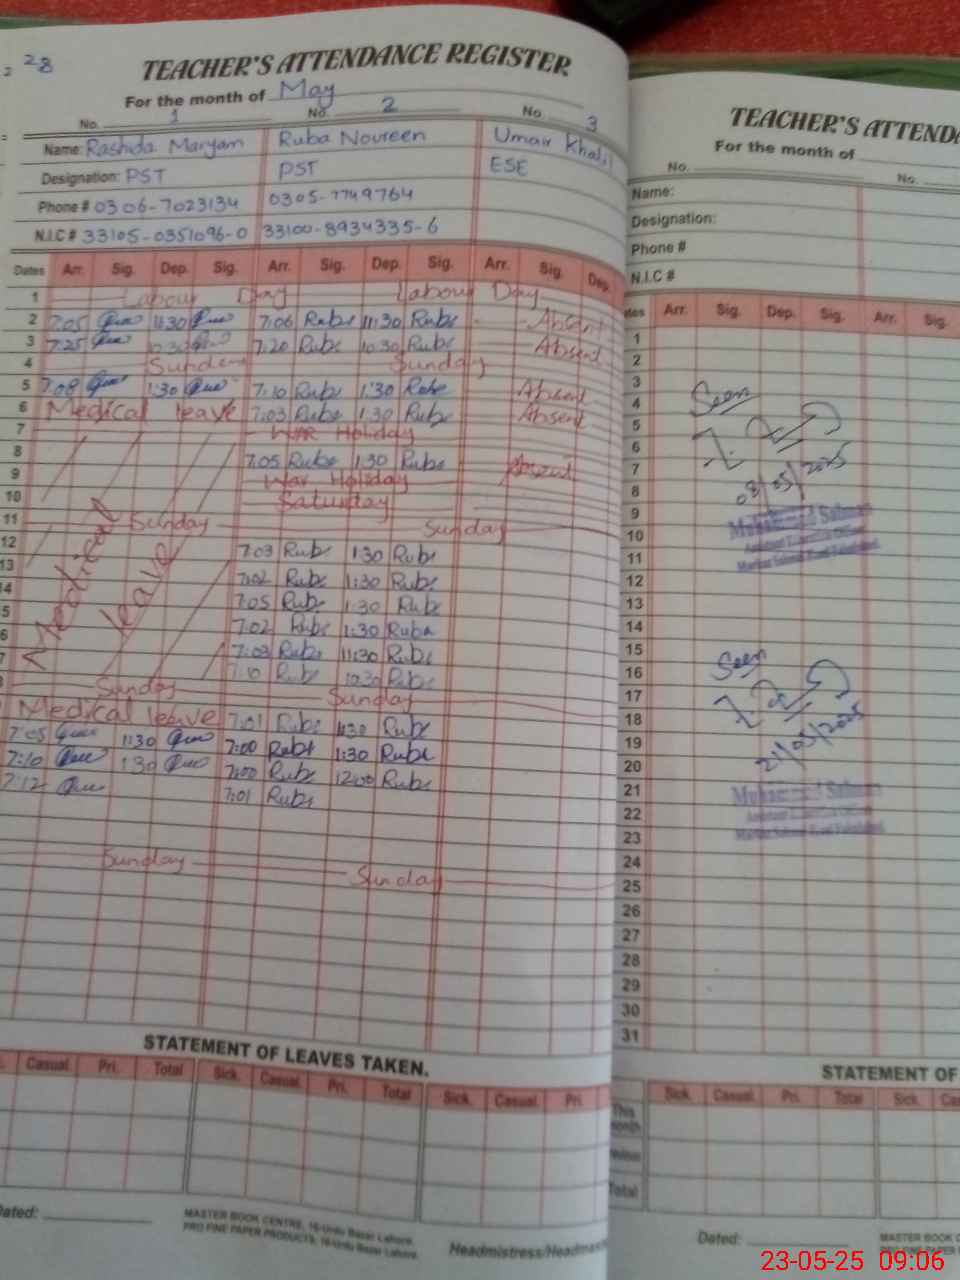 28
TEACHER'S ATTENDANCE REGISTER
For the month of May
No. 1 No. 2 No. 3
Name: Rashida Maryam Ruba Noureen Umair Khalil
Designation: PST PST ESE
Phone # 0306-7023134 0305-7749764
N.I.C # 33105-0351096-0 33100-8934335-6
Dates Arr. Sig. Dep. Sig. Arr. Sig. Dep. Sig. Arr. Sig. Dep.
1 Labour Day Labour Day
2 7:05 11:30 7:06 Rubs 11:30 Rubs Absent
3 7:25 7:20 Rubs 10:30 Rubs Absent
4 Sunday Sunday
5 7:08 1:30 7:10 Rubs 1:30 Rubs Absent
6 Medical leave 7:03 Rubs 1:30 Rubs Absent
7 War Holiday
8 7:05 Rubs 1:30 Rubs Absent
9 War Holiday
10 Saturday
11 Sunday Sunday
12 7:03 Rubs 1:30 Rubs
13 7:02 Rubs 1:30 Rubs
7:05 Rubs 1:30 Rubs
7:02 Rubs 1:30 Ruba
7:03 Rubs 11:30 Rubs
7:10 Rubs 10:30 Rubs
Medical leave
Sunday Sunday
Medical leave 7:01 Rubs 1:30 Rubs
7:05 1:30 7:00 Rubs 1:30 Rubs
7:10 1:30 7:00 Rubs 12:00 Rubs
7:12 7:01 Rubs
Sunday Sunday
STATEMENT OF LEAVES TAKEN.
Casual. Pri. Total Sick. Casual. Pri. Total Sick. Casual. Pri.
Dated:
MASTER BOOK CENTRE, 16-Urdu Bazar Lahore.
PRO FINE PAPER PRODUCTS, 16-Urdu Bazar Lahore.
Headmistress/
TEACHER'S
For the month of
No. No.
Name:
Designation:
Phone #
N.I.C #
Arr. Sig. Dep. Sig. Arr. Sig.
1
2
3
4
5
6
7
8
9
10
11
12
13
14
15
16
17
18
19
20
21
22
23
24
25
26
27
28
29
30
31
Seen
08/05/2025
Muhammad Salman
Assistant Education Officer
Seen
21/05/2025
Muhammad Salman
Assistant Education Officer
STATEMENT OF
Sick. Casual. Pri. Total Sick.
This month
Total
Dated:
MASTER BOOK
23-05-25 09:06